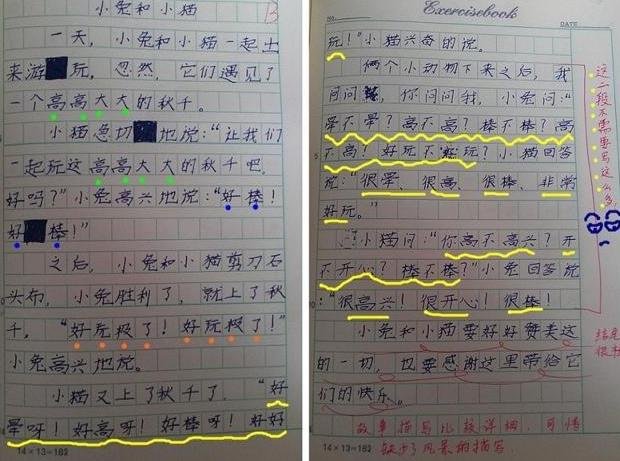 小兔和小猫
一天，小兔和小猫一起出
来游玩，忽然，它们遇见了
一个高高大大的秋千。
小猫急切地说：“让我们
一起玩这高高大大的秋千吧，
好吗？”小兔高兴地说：“好棒！
好棒！”
之后，小兔和小猫剪刀石
头布，小兔胜利了，就上了秋
千，“好玩极了！好玩极了！”
小兔高兴地说。
小猫又上了秋千了，“好
晕呀！好高呀！好棒呀！好好
14×13=182
Exercisebook
NO.
DATE
玩！”小猫兴奋的说。
俩个小动物下来之后，我
问问你，你问问我，小兔问：“
晕不晕？高不高？棒不棒？高
不高？好玩不好玩？小猫回答
说：“很晕、很高、很棒、非常
好玩。”
小猫问：“你高不高兴？开
不开心？棒不棒？”小兔回答说
：“很高兴！很开心！很棒！
小兔和小猫要好好赞美这
的一切，也要感谢这里带给它
们的快乐。
这二段不需要写这么多，
故事描写比较详细，可惜
缺少了风景的描写
14×13=182